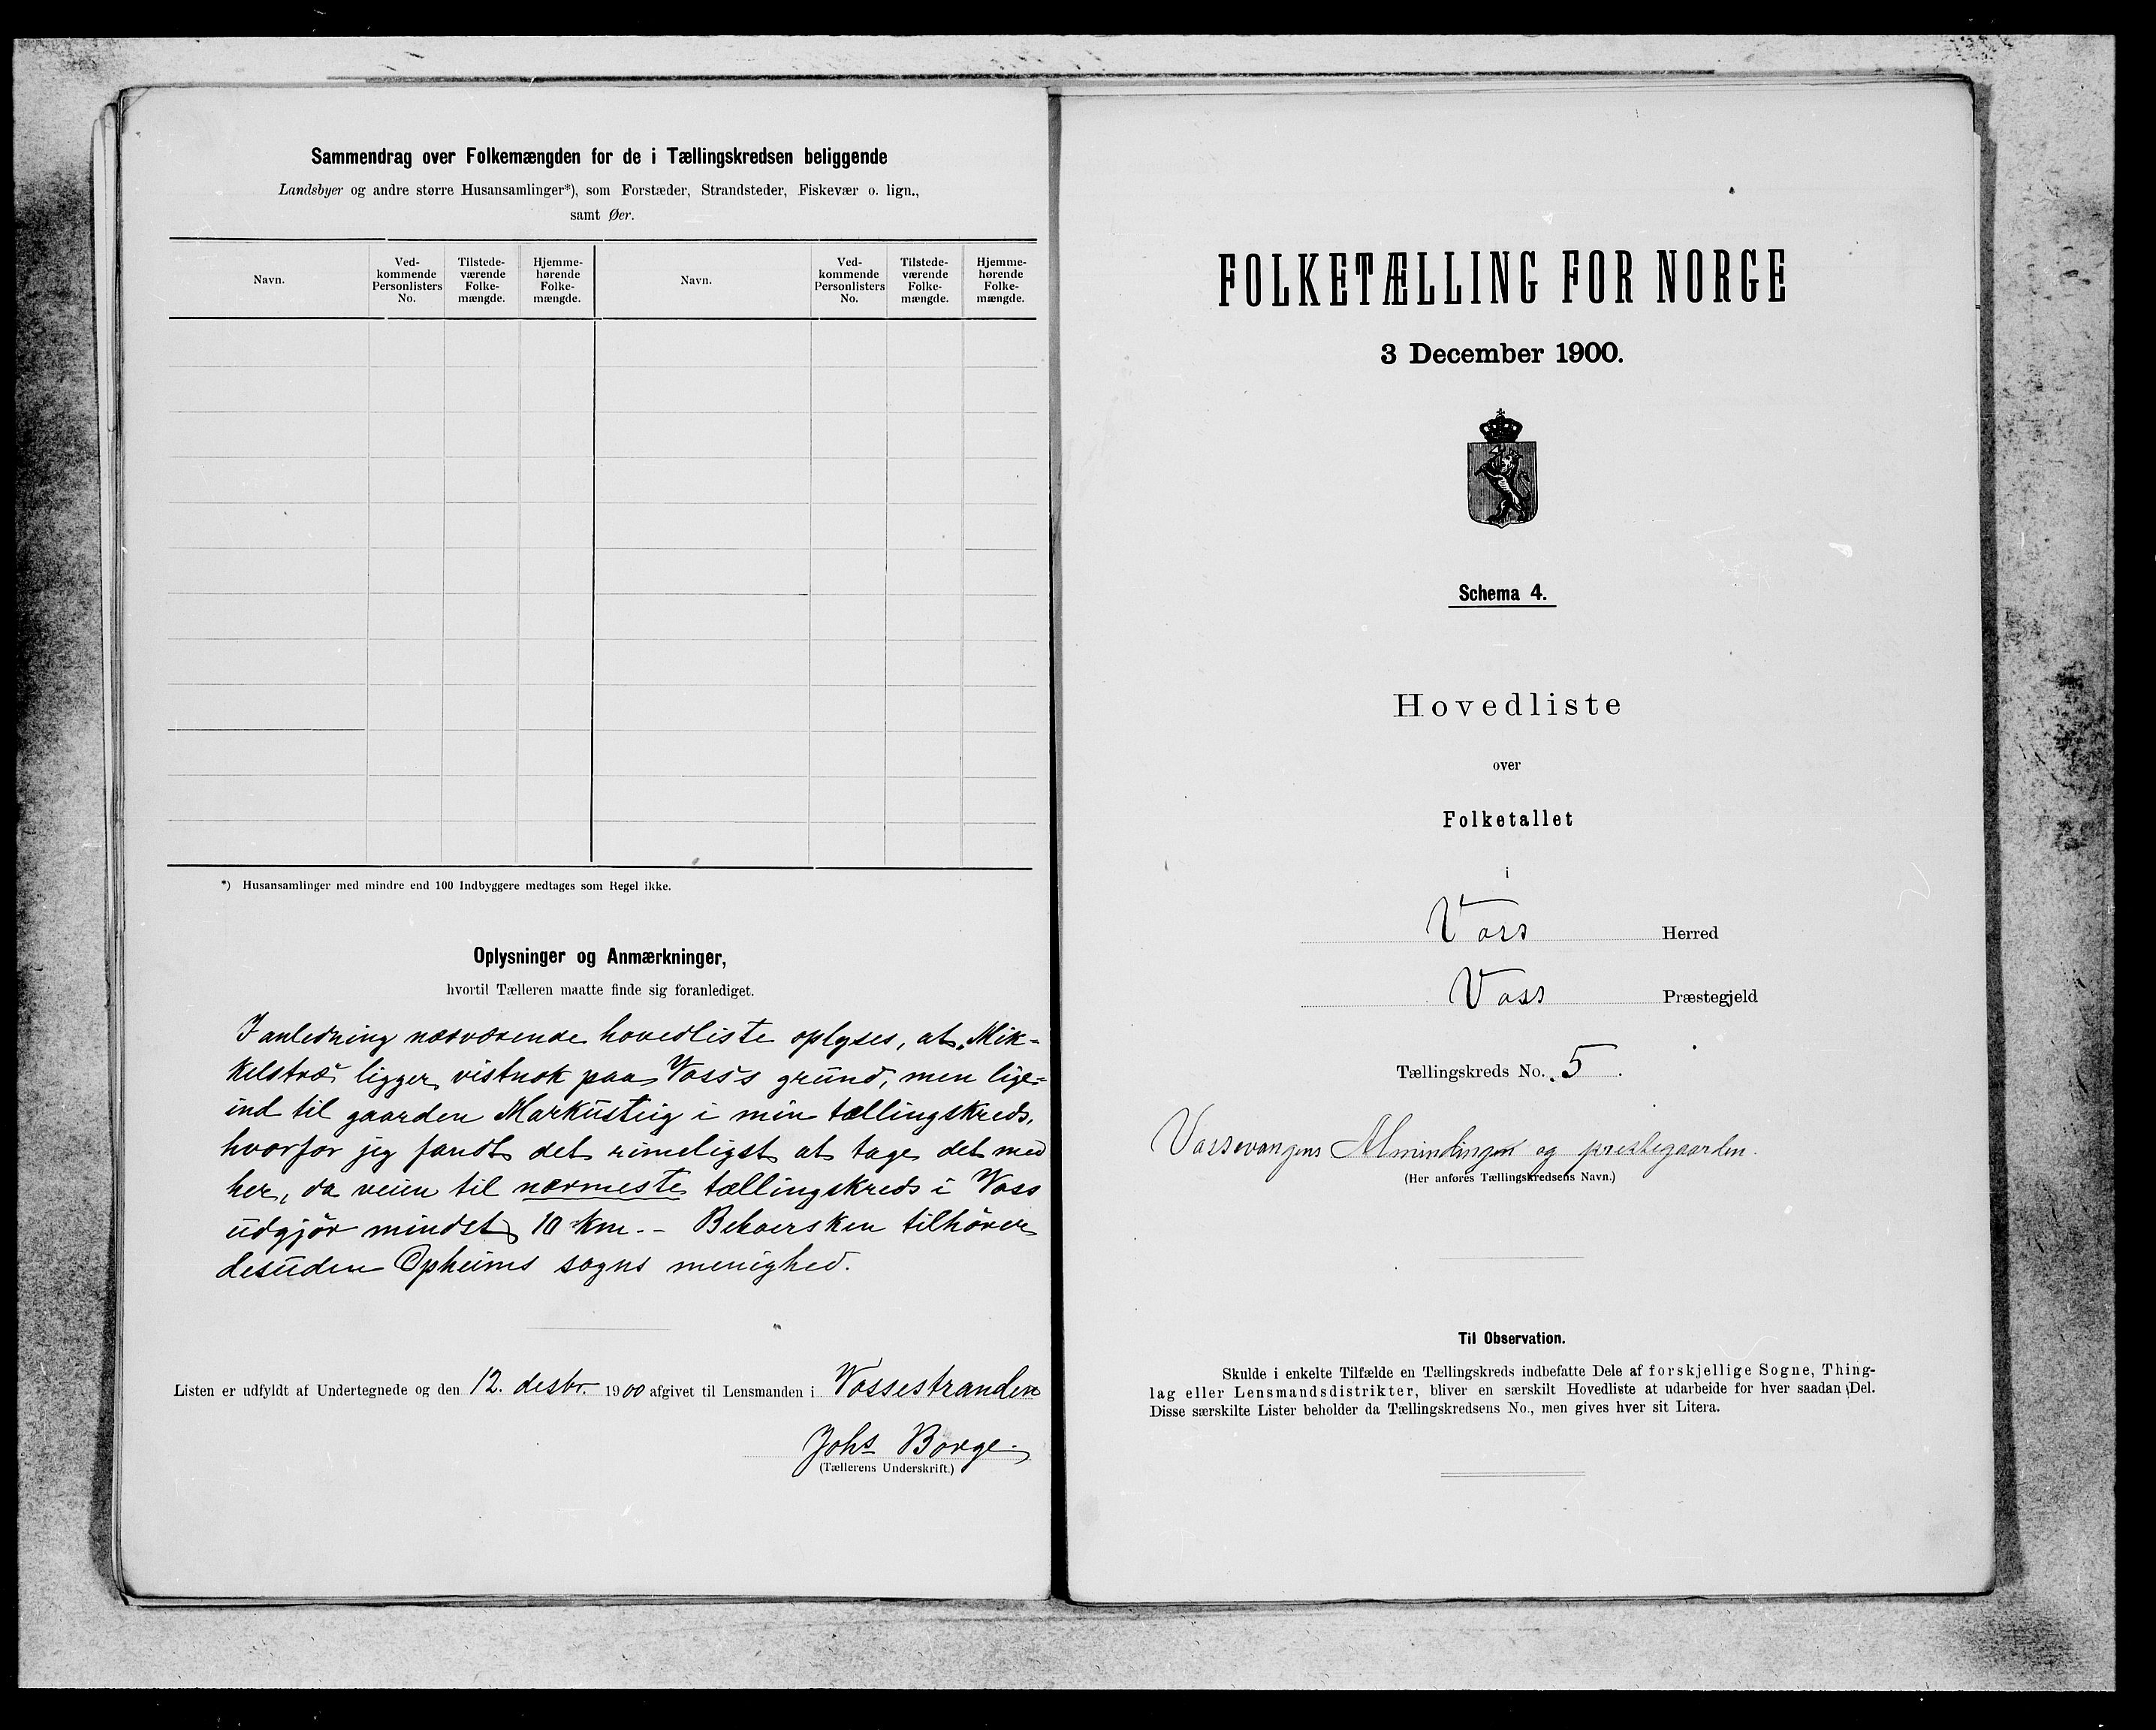 Sammendrag over Folkemængden for de i Tællingskredsen beliggende
Landsbyer og andre større Husansamlinger*), som Forstæder, Strandsteder, Fiskevær o. lign.,
samt Øer.
Navn.
Ved-
kommende
Personlisters
No.
Tilstede-
værende
Folke-
mængde.
Hjemme-
hørende
Folke-
mængde.
Navn.
Ved-
kommende
Personlisters
No.
Tilstede-
værende
Folke-
mængde.
Hjemme-
hørende
Folke-
mængde.
*) Husansamlinger med mindre end 100 Indbyggere medtages som Regel ikke.
Oplysninger og Anmærkninger,
hvortil Tælleren maatte finde sig foranlediget.
I anledning nærværende hovedliste oplyses, at „Mik-
kelstræ“ ligger vistnok paa Voss's grund, men lige-
ind til gaarden Markusteig i min tællingskreds,
hvorfor jeg fandt det rimeligst at tage det med
her, da veien til nærmeste tællingskreds i Voss
udgjör mindst 10 km. –
tilhörer
desuden Opheims sogns menighed.
Listen er udfyldt af Undertegnede og den 12. desbr. 1900 afgivet til Lensmanden i Vossestranden
Johs Borge.
(Tællerens Underskrift.)
FOLKETÆLLING FOR NORGE
3 December 1900.
Schema 4.
Hovedliste
over
Folketallet
i
Voss Herred
Voss Præstegjeld
Tællingskreds No. 5.
Vossevangens Almindingen og prestegaarden.
(Her anføres Tællingskredsens Navn.)
Til Observation.
Skulde i enkelte Tilfælde en Tællingskreds indbefatte Dele af forskjellige Sogne, Thing-
lag eller Lensmandsdistrikter, bliver en særskilt Hovedliste at udarbeide for hver saadan Del.
Disse særskilte Lister beholder da Tællingskredsens No., men gives hver sit Litera.